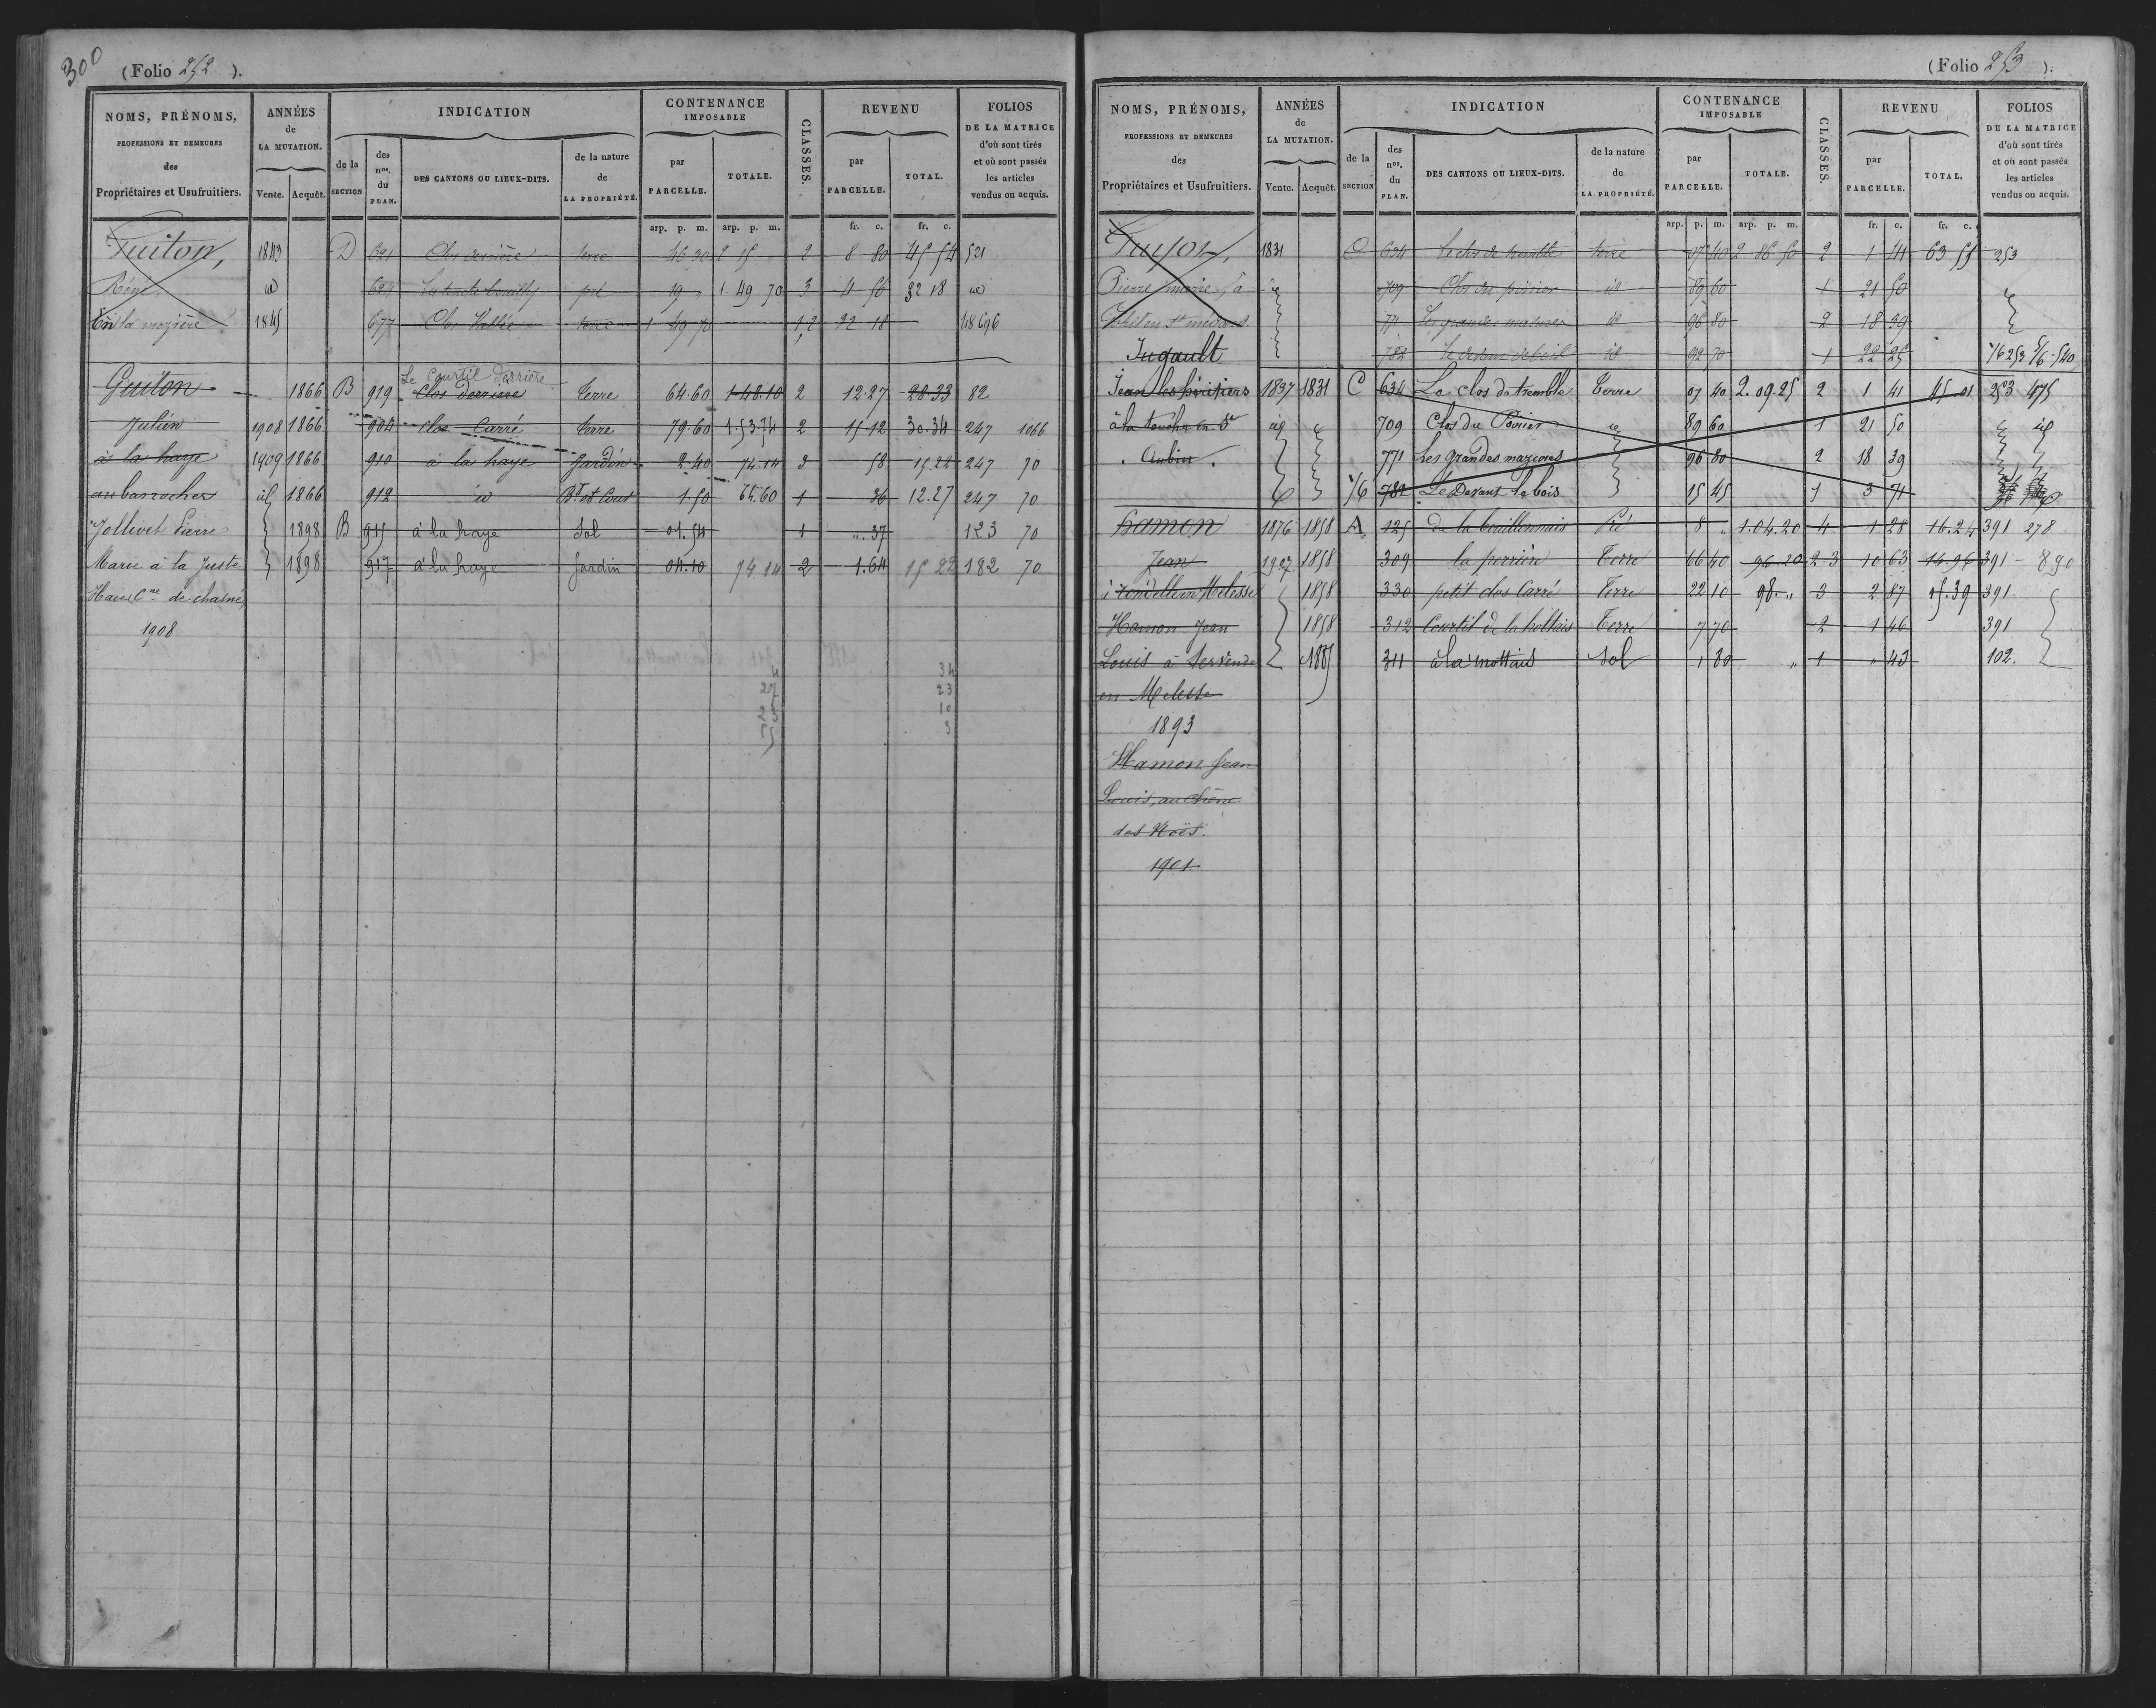 300
(Folio 252 ).
NOMS, PRÉNOMS,
PROFESSIONS ET DEMEURES
des
Propriétaires et Usufruitiers.
ANNÉES
de
LA MUTATION.
Vente. Acquêt.
INDICATION
de la
SECTION
des
nos.
du
PLAN.
DES CANTONS OU LIEUX-DITS.
de la nature
de
LA PROPRIÉTÉ.
CONTENANCE
IMPOSABLE
par
PARCELLE.
TOTALE.
CLASSES.
REVENU
par
PARCELLE.
TOTAL.
FOLIOS
DE LA MATRICE
d'où sont tirés
et où sont passés
les articles
vendus ou acquis.
arp. p. m. arp. p. m. fr. c. fr. c.
Guiton, 1843 D 691 Clos derrière terre 46 30 2 15 2 8 80 45 54 521
id pré 19 " 1. 49 70 3 4 56 32 18 id
1845 677 Clos Vallée terre 1 49 70 1,2 32 18
Le Courtil Derrière
Guiton 1866 B 919 Clos Derriere terre 64.60 1.48.10 2 12.27 28.33 82
Julien 1908 1866 904 clos Carré terre 79.60 1.53.74 2 15 12 30.34 247 1066
à la haye 1909 1866 910 à la haye Jardin 2.40 74.14 3 58 15.22 247 70
au barrocher id 1866 912 id Bt et Cour 1.50 64.60 1 36 12.27 247 70
Jollivet Pierre 1898 B 915 à la haye Sol 01.54 1 ".37 123 70
Marie à la Juste 1898 917 à la haye Jardin 04.10 74 14 2 1.64 15 22 182 70
Haie Cne de chasné
1908
34
27 23
10
3
(Folio 253 ).
NOMS, PRÉNOMS,
PROFESSIONS ET DEMEURES
des
Propriétaires et Usufruitiers.
ANNÉES
de
LA MUTATION.
Vente. Acquêt.
INDICATION
de la
SECTION
des
nos.
du
PLAN.
DES CANTONS OU LIEUX-DITS.
de la nature
de
LA PROPRIÉTÉ.
CONTENANCE
IMPOSABLE
par
PARCELLE.
TOTALE.
CLASSES.
REVENU
par
PARCELLE.
TOTAL.
FOLIOS
DE LA MATRICE
d'où sont tirés
et où sont passés
les articles
vendus ou acquis.
arp. p. m. arp. p. m. fr. c. fr. c.
Guyon, 1831 C 634 le clos de tremble terre 07 40 2 86 50 2 1 41 63 55 253
Pierre marie id 709 Clos du poirier id 89 60 1 21 50
771 Les grandes mazures id 96 80 2 18 39
Jugault 782 le devant le bois id 92 70 1 22 25 1/6 253 5/6 540
Jean les 1837 1831 C 634 Le clos de tremble Terre 07 40 2.09.25 2 1 41 45 01 253 475
à la touche en St id 709 Clos du Poirier id 89 60 1 21 50 id
Aubin 771 Les Grandes mazures 96 80 2 18 39
1/6 782 Le Devant le bois 15 45 1 3 71
hamon 1876 1858 A 125 de la bouillonnais Pré 8 " 1.04.20 4 1 28 16.24 391 278
Jean 1927 1858 309 la perrière Terre 66 40 96.20 2 3 10 63 14.96 391 - 890
en Melesse 1858 330 petit clos Carré Terre 22 10 98. " 3 2 87 15.39 391
Hamon Jean 1858 312 Courtil de la hottais Terre 7 70 2 1 46 391
Louis à Servende 1885 311 à la mottais Sol 1 80 " 1 " 43 102.
en Melesse
1893
Hamon Jean
Louis, au chêne
des Noës.
1901